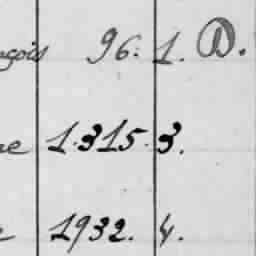 nçois 96. 1. D.
ne 1.315. 3.
e 1932. 4.